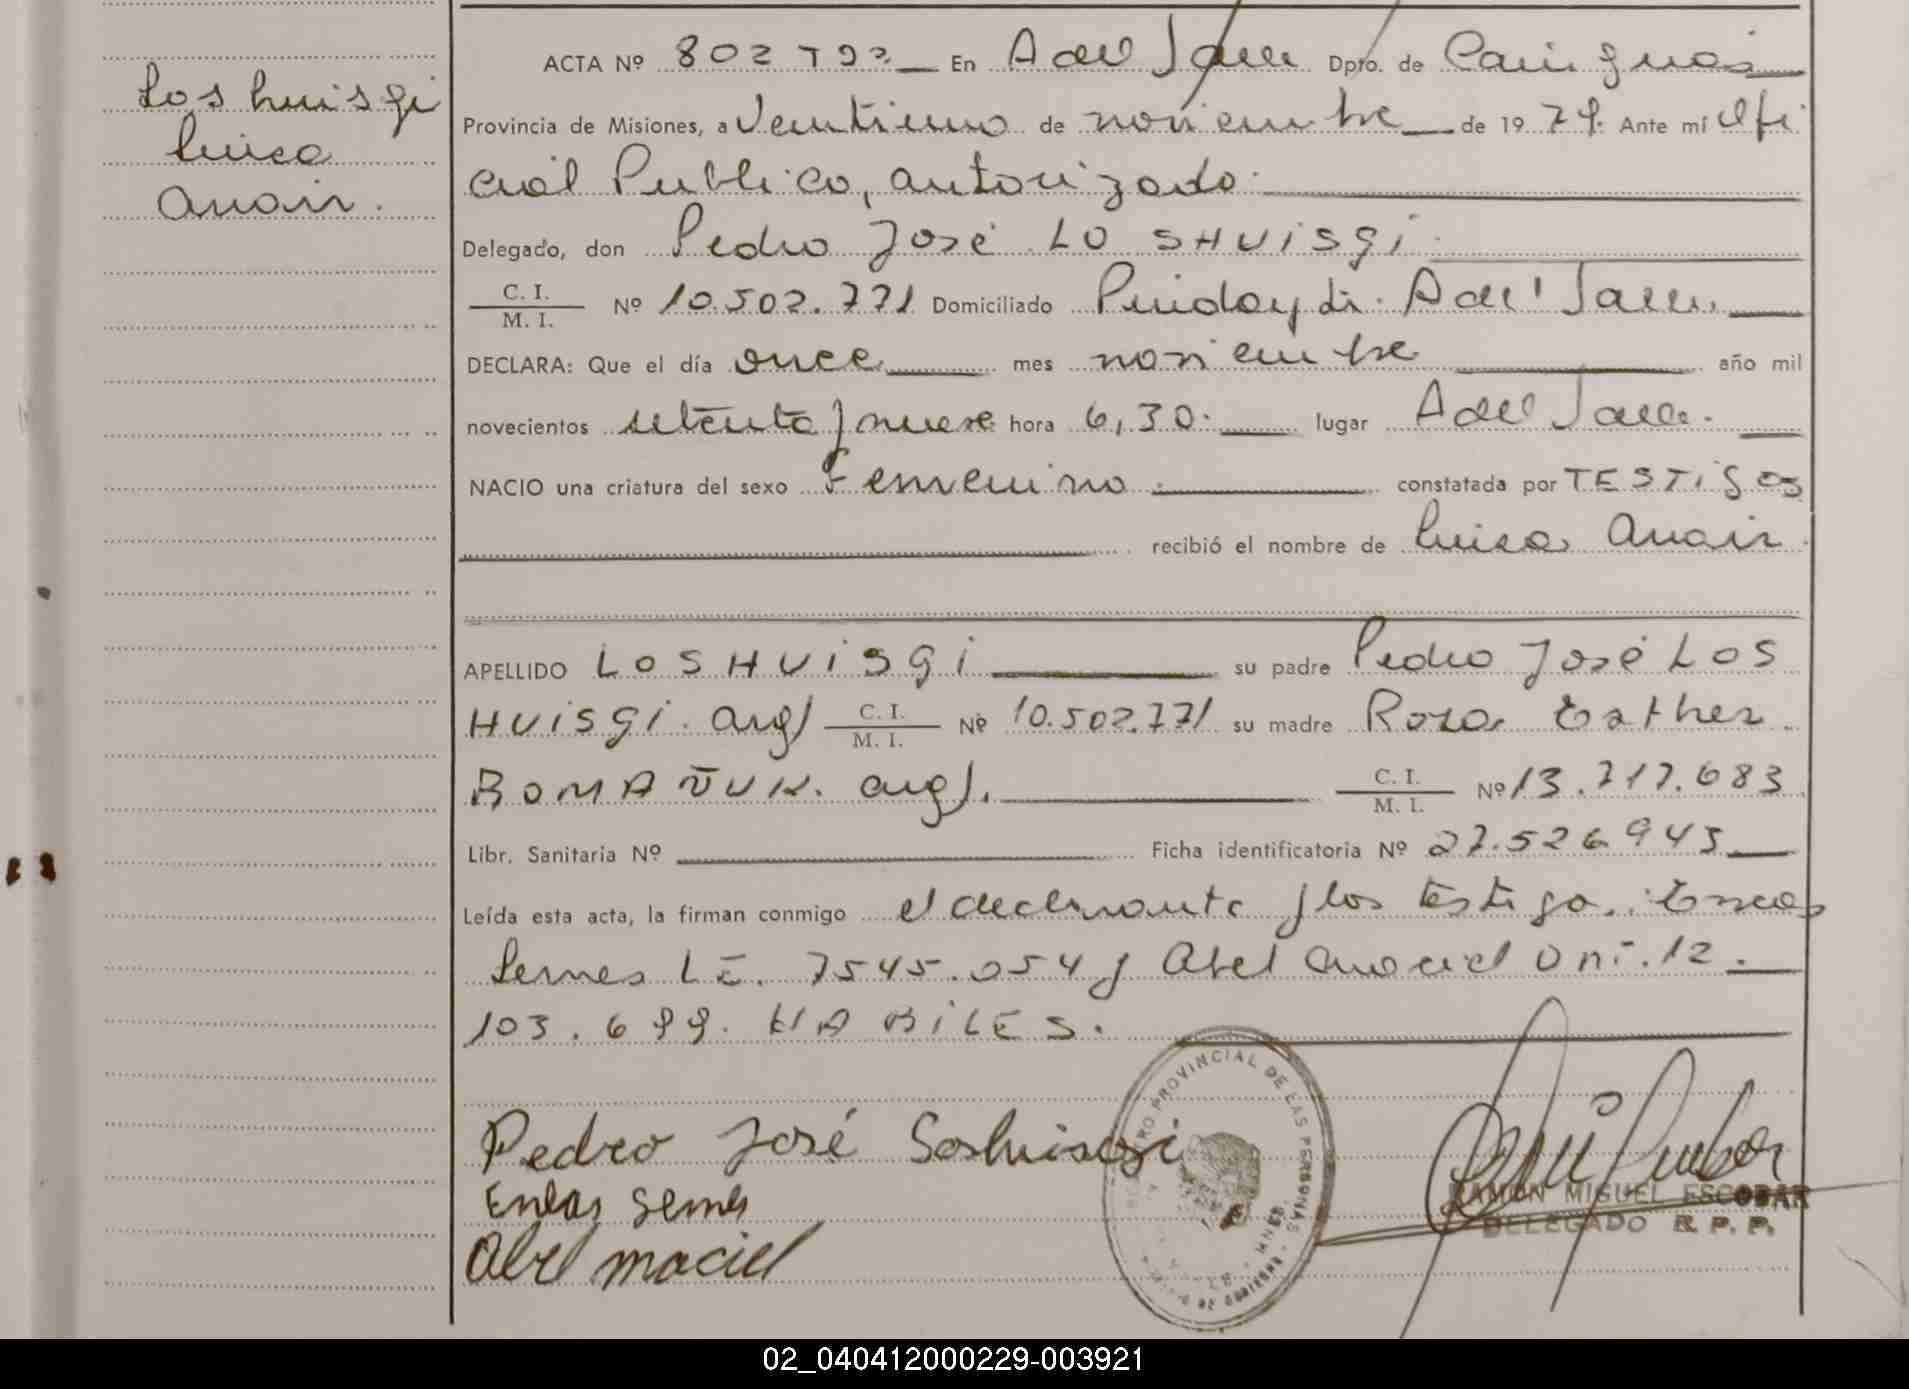 Loshuisgi
Luisa
Anair.
ACTA Nº 802 T92 En A del Valle Dpto. de Cainguás
Provincia de Misiones, a Veintiuno de noviembre de 1979. Ante mí Ofi
cial Publico, autorizado.
Delegado, don Pedro José LOSHUISGI.
C. I.
M. I. Nº 10.502.771 Domiciliado Pindayti. A del Valle.
DECLARA: Que el día once mes noviembre año mil
novecientos setenta y nueve hora 6,30. lugar A del Valle.
NACIO una criatura del sexo Femenino. constatada por TESTIGOS
recibió el nombre de Luisa Anair.
APELLIDO LOSHUISGI su padre Pedro José LOS
HUISGI. arg) C. I.
M. I. Nº 10.502.771 su madre Rosa Esther
ROMAÑUK. arg). C. I.
M. I. Nº 13.717.683
Libr. Sanitaria Nº Ficha identificatoria Nº 27.526.943
Leída esta acta, la firman conmigo el declarante y los testigo.: Eneas
Semes LE. 7545.054 y Abel Maciel Dni. 12.
103.699. HABILES.
REGISTRO PROVINCIAL DE LAS PERSONAS
Pedro José Loshuisgi
Eneas Semes
Abel Maciel
RAMON MIGUEL ESCOBAR
DELEGADO R. P. P.
02_040412000229-003921